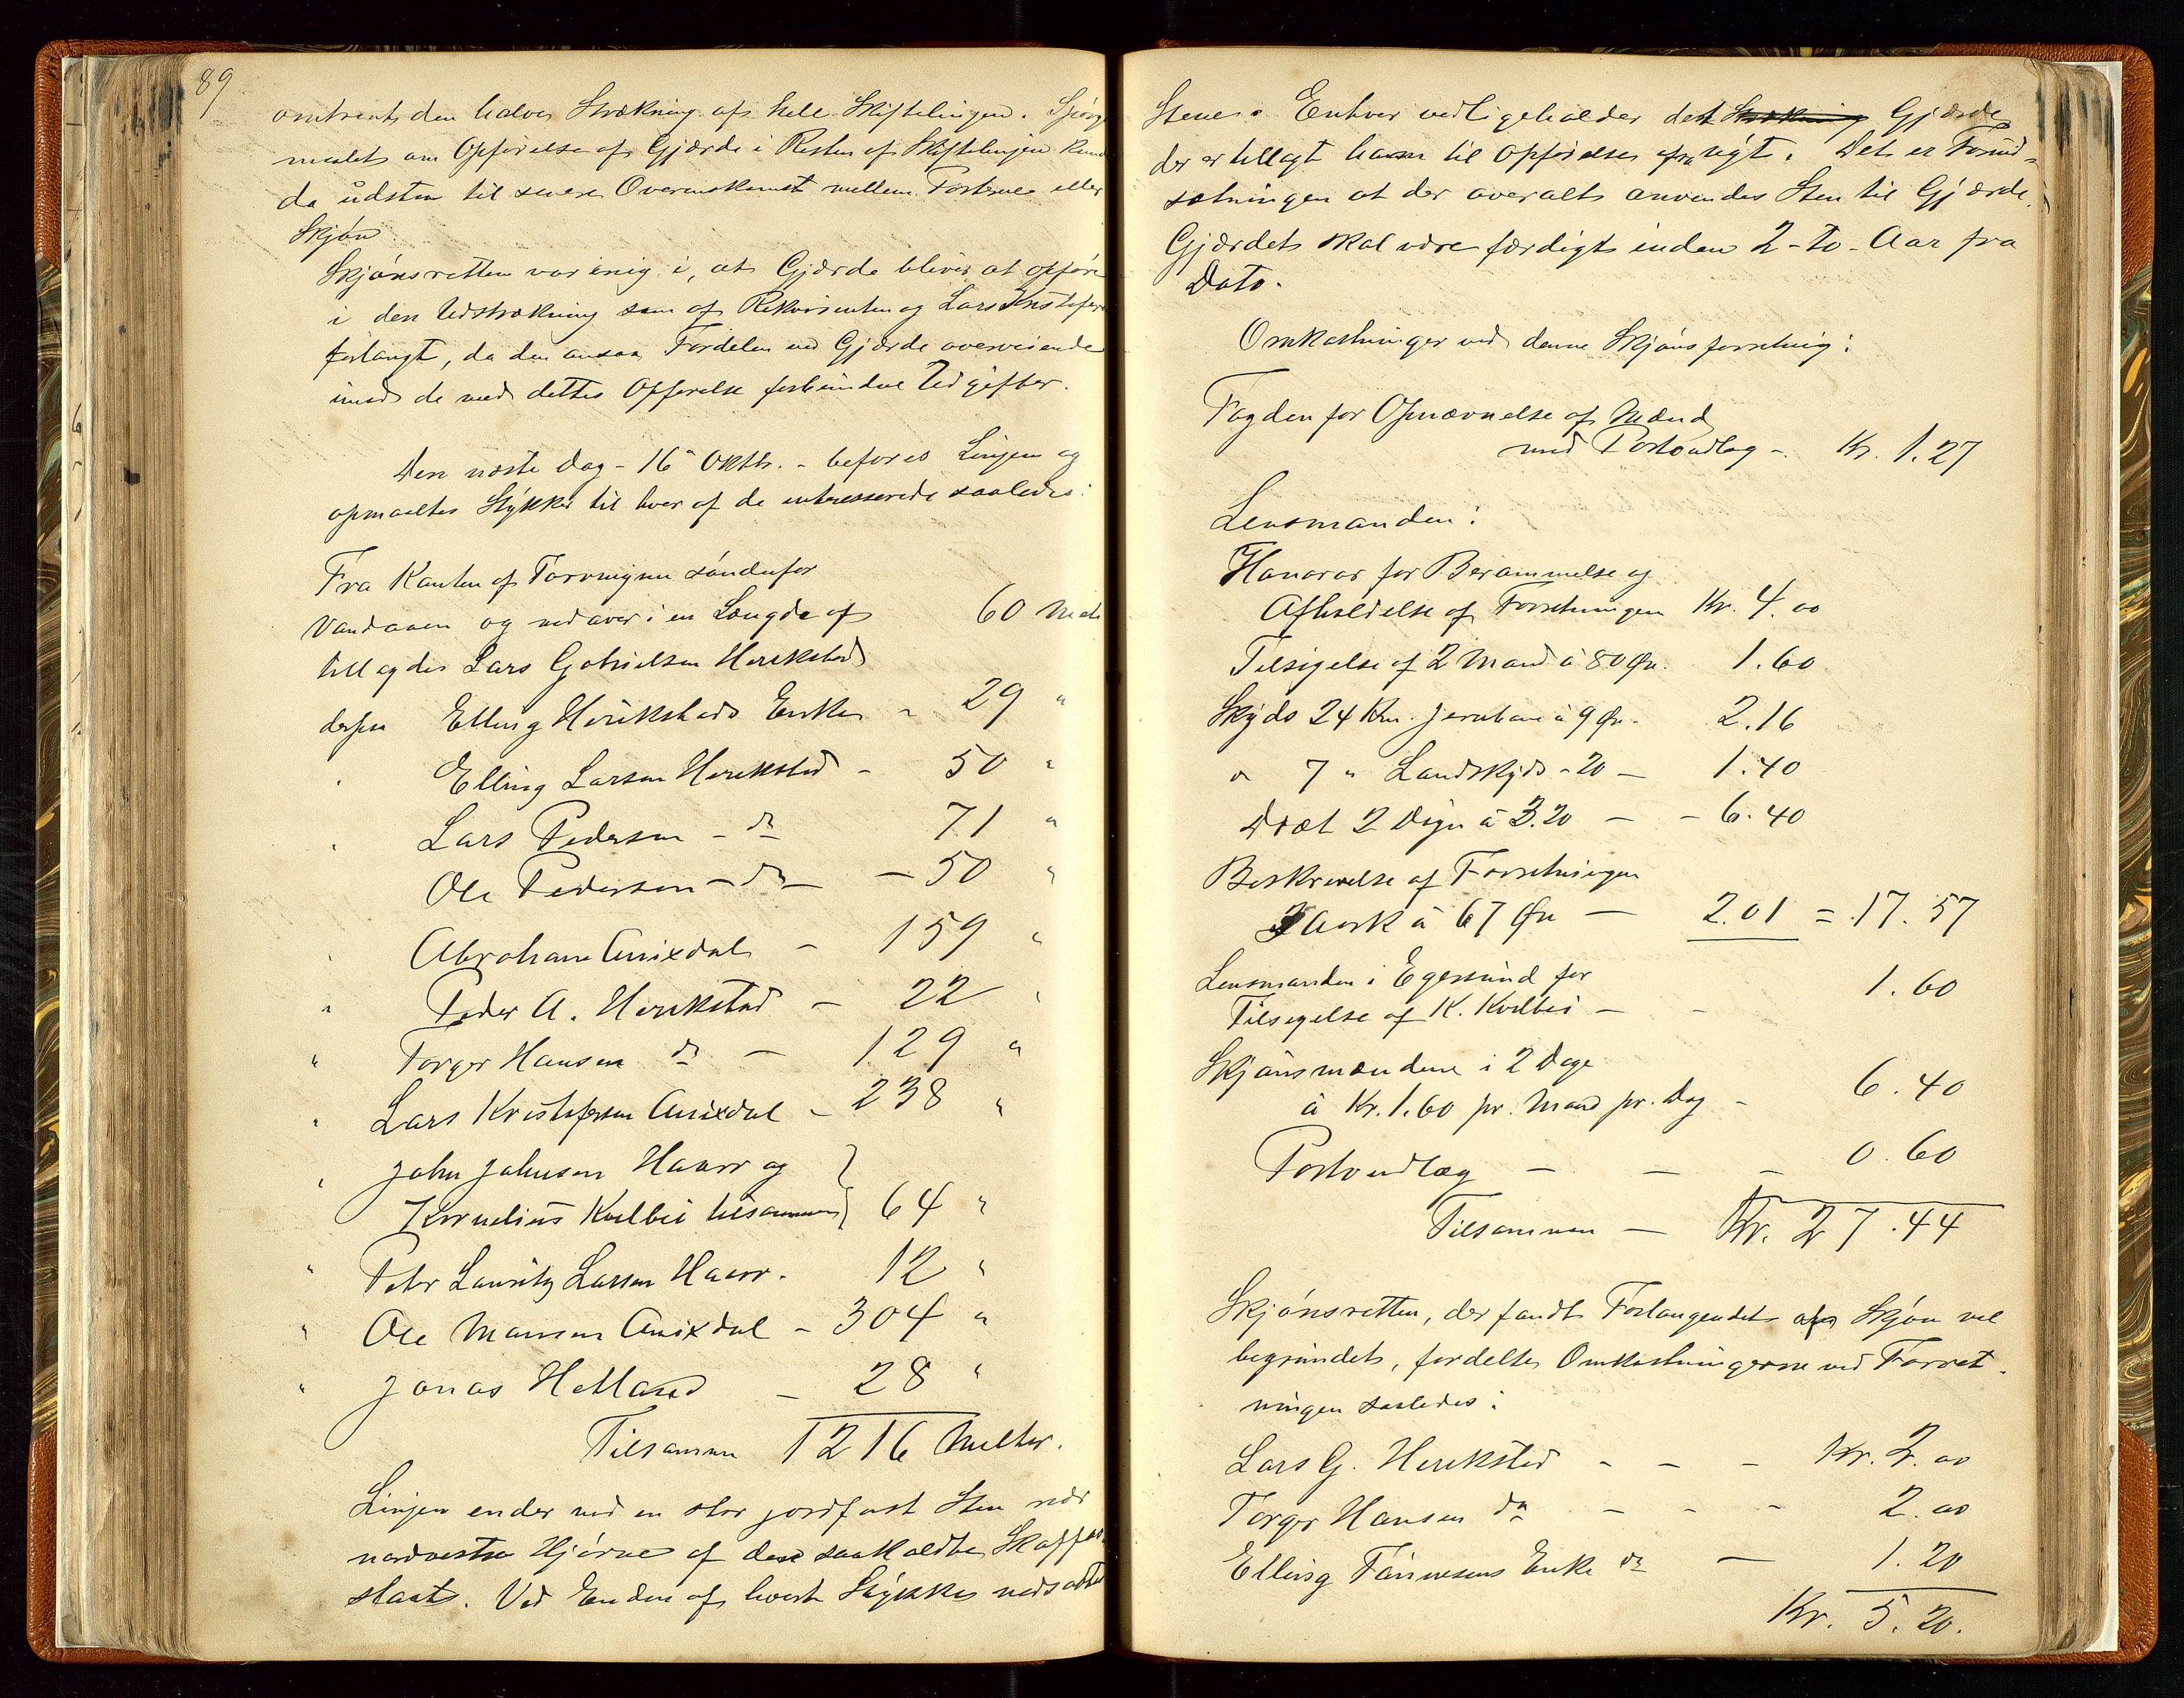 89
omtrent den halve Strækning af hele Skiftelinjen. Spörgs
maalet om Opförelse af Gjærde i Resten af Skiftelinjen kunde
da udstaa til senere Overenskomst mellem Parterne eller
Skjön.
Skjönsretten var enig i, at Gjærde bliver at opföre
i den Udstrækning som af Rekvirenten og Lars Kristofersen
forlangt, da den ansaa Fordelen ved Gjærde overveiende
imod de med dettes Opförelse forbundne Udgifter.
Den næste Dag - 16de Oktbr. - beföres Linjen og
opmaaltes Stykker til hver af de interesserede saaledes:
Fra Kanten af Torvmyren söndenfor
Vandaaen og nedover i en Længde af 60 Met
tillagdes Lars Gabrielsen Herikstad
derfra Elling Herikstads Enke - 29 "
" Elling Larsen Herikstad - 50 "
" Lars Pedersen - do 71 "
Ole Pedersen - do - 50 "
" Abraham Anixdal - 159 "
" Peder A. Herikstad - 22 "
" Torger Hansen do - 129 "
" Lars Kristofersen Anixdal - 238 "
" John Johnsen Haarr og
Kornelius Kvilbei tilsammen 64 "
" Peter Lauritz Larsen Haarr. 12 "
" Ole Monsen Anixdal - 304 "
" Jonas Helland - 28 "
Tilsammen 1216 Meter.
Linjen ender ved en stor jordfast Sten nær
nordvestre Hjörne af den saakaldte
slaat. Ved Enden af hvert Stykke nedsattes
Stene. Enhver vedligeholder det Strækning Gjærde
der er tillagt ham til Opförelse af nyt. Det er Forud-
sætningen at der overalt anvendes Sten til Gjærde.
Gjærdet skal være færdigt inden 2 - to - Aar fra
Dato.
Omkostninger ved denne Skjönsforretning:
Fogden for Opnævnelse af Mænd
med Portoudlæg - Kr. 1.27
Lensmanden:
Honorar for Berammelse og
Afholdelse af Forretningen Kr. 4.00
Tilsigelse af 2 Mænd á 80 Öre. 1.60
Skyds 24 Km. Jernbane á 9 Öre. 2.16
" 7 " Landskyds - 20 - 1.40
Diæt 2 Dögn á 3.20 - - 6.40
Beskrivelse af Forretningen
3 Aork á 67 Öre - 2.01 = 17.57
Lensmanden i Egersund for
Tilsigelse af K. Kvilbei - - 1.60
Skjönsmændene i 2 Dage
á Kr. 1.60 pr. Mand pr. Dag - 6.40
Portoudlæg - - - 0.60
Tilsammen - Kr. 27.44
Skjönsretten, der fandt Forlangendet om Skjön vel
begrundet, fordelte Omkostningerne ved Forret-
ningen saaledes:
Lars G. Herikstad - - - Kr. 2.00
Torger Hansen do - - - 2.00
Elling Tönnesens Enke do - 1.20
Kr. 5.20.